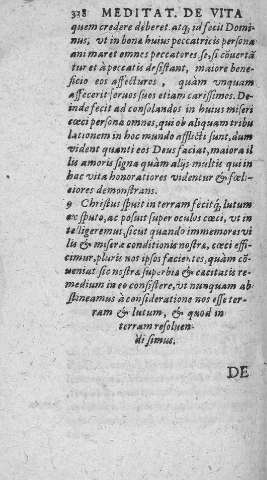 328 MEDITAT. DE VITA
quem credere deberet. atq; id fecit Domi-
nus, vt in bona huius peccatricis persona
ani maret omnes peccatores se, si cõuertã
tur et à peccatis desistant, maiore bene-
ficio eos affecturos, quàm vnquam
affecerit seruos suos etiam carissimos. De-
inde fecit ad consolandos in huius miseri
cœci persona omnes, qui ob aliquam tribu
lationem in hoc mundo afflicti sunt, dum
vident quanti eos Deus faciat, maiora il
lis amoris signa quàm alijs multis qui in
hac vita honoratiores videntur & fœli-
ciores demonstrans.
9 Christus spuit in terram fecitq; lutum
ex sputo, ac posuit super oculos cœci, vt in
telligeremus, sicut quando immemores vi
lis & miseræ conditionis nostræ, cœci effi-
cimur, pluris nos ipsos facientes, quàm cõ-
ueniat sic nostræ superbiæ & cæcitatis re
medium in eo consistere, vt nunquam ab-
stineamus à consideratione nos esse ter-
ram & lutum, & quod in
terram resoluen-
di simus.
DE